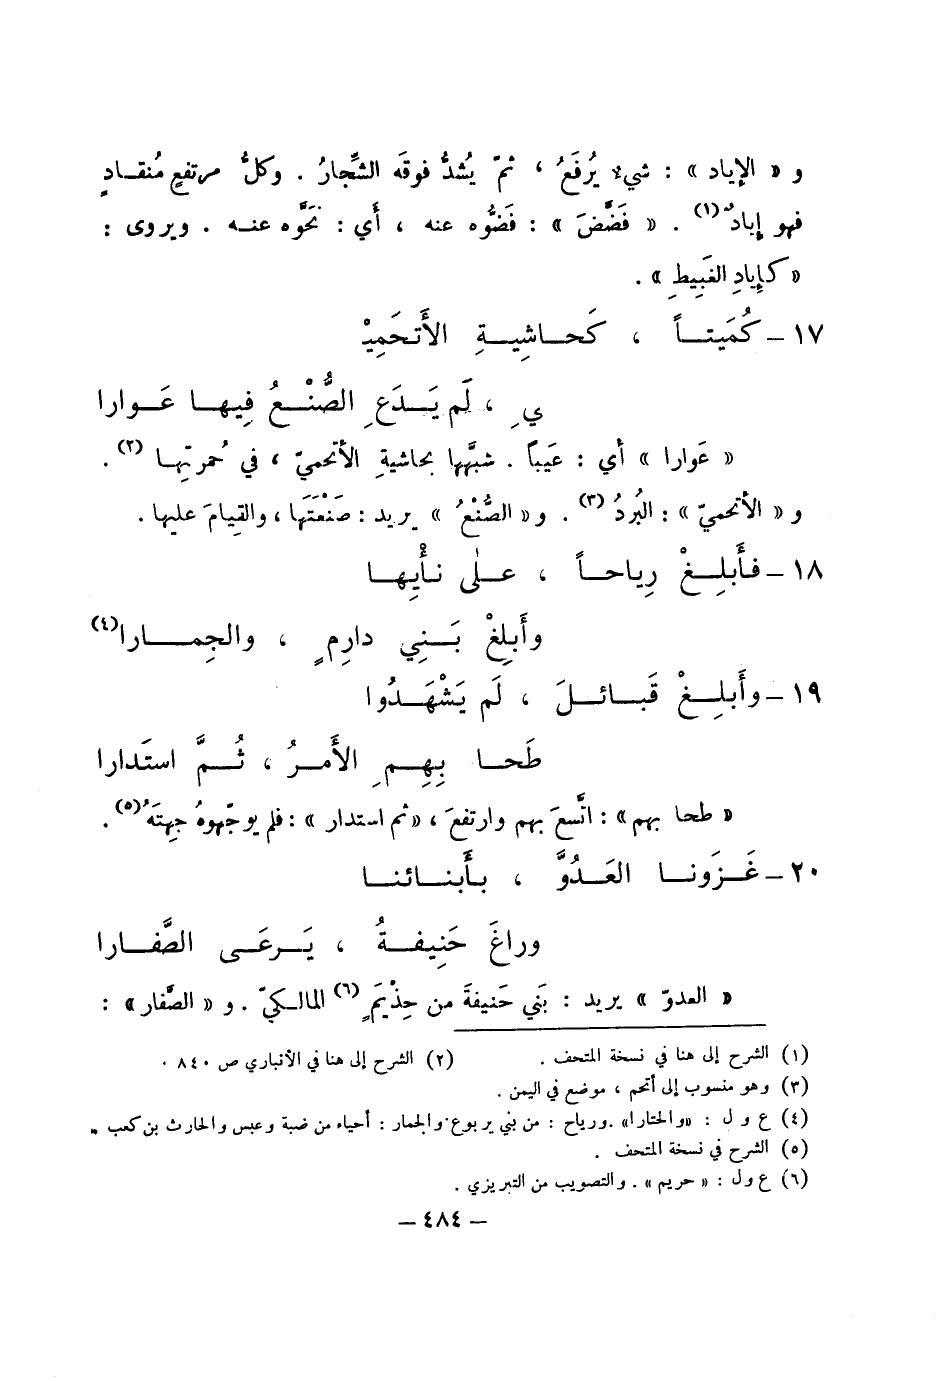 و « الإياد » : شيء يُرفَعُ ، ثمّ يُشدُّ فوقَه الشِّجارُ . وكلُّ مرتفعٍ مُنقـادٍ
فهو إيادٌ(١) . « فَضَّضَ » : فَضُّوه عنه ، أَي : نَحُّوه عنـه . ويروى :
« كإِيادِ الغَبِيطِ » .
١٧ – كُمَيتـاً ، كَحـاشِيـةِ الأَتحَمِيْ
يِ ، لَم يَـدَعِ الصُّنْـعُ فِيهـا عَـوارا
« عَوارا » أي : عَيباً . شبهَّها بحاشيةِ الأتحميّ ، في حُمرتِها (٢) .
و « الأتحميّ » : البُردُ (٣) . و« الصُّنْعُ » يريد : صَنْعَتَها ، والقِيامَ عليها .
١٨ – فأَبلِـغْ رِياحـاً ، عـلى نأْيِهـا
وأَبلِغْ بَـنِي دارِمٍ ، والجِمـارا(٤)
١٩ – وأَبلِـغْ قَبـائـلَ ، لَم يَشْهَـدُوا
طَحـا بِهِـمِ الأَمـرُ ، ثُـمَّ استَدارا
« طحا بهم » : اتَّسعَ بهم وارتفعَ ، «ثم استدار » : فلم يوجّهوهُ جِهتَهُ(٥) .
٢٠ – غَـزَونـا العَـدُوَّ ، بـأَبنـائنـا
وراغَ حَنِيفـةُ ، يَـرعَـى الصَّفـارا
« العدوّ » يريد : بَني حَنيفةَ من حِذْيَمٍ (٦) المالكيّ . و « الصَّفار » :
(١) الشرح إلى هنا في نسخة المتحف .
(٢) الشرح إلى هنا في الأنباري ص ٨٤٠ .
(٣) وهو منسوب إلى أتحم ، موضع في اليمن .
(٤) ع و ل : «والختارا» . ورياح : من بني يربوع . والجمار : أحياء من ضبة وعبس والحارث بن كعب .
(٥) الشرح في نسخة المتحف .
(٦) ع ول : « حريم » . والتصويب من التبريزي .
– ٤٨٤ –